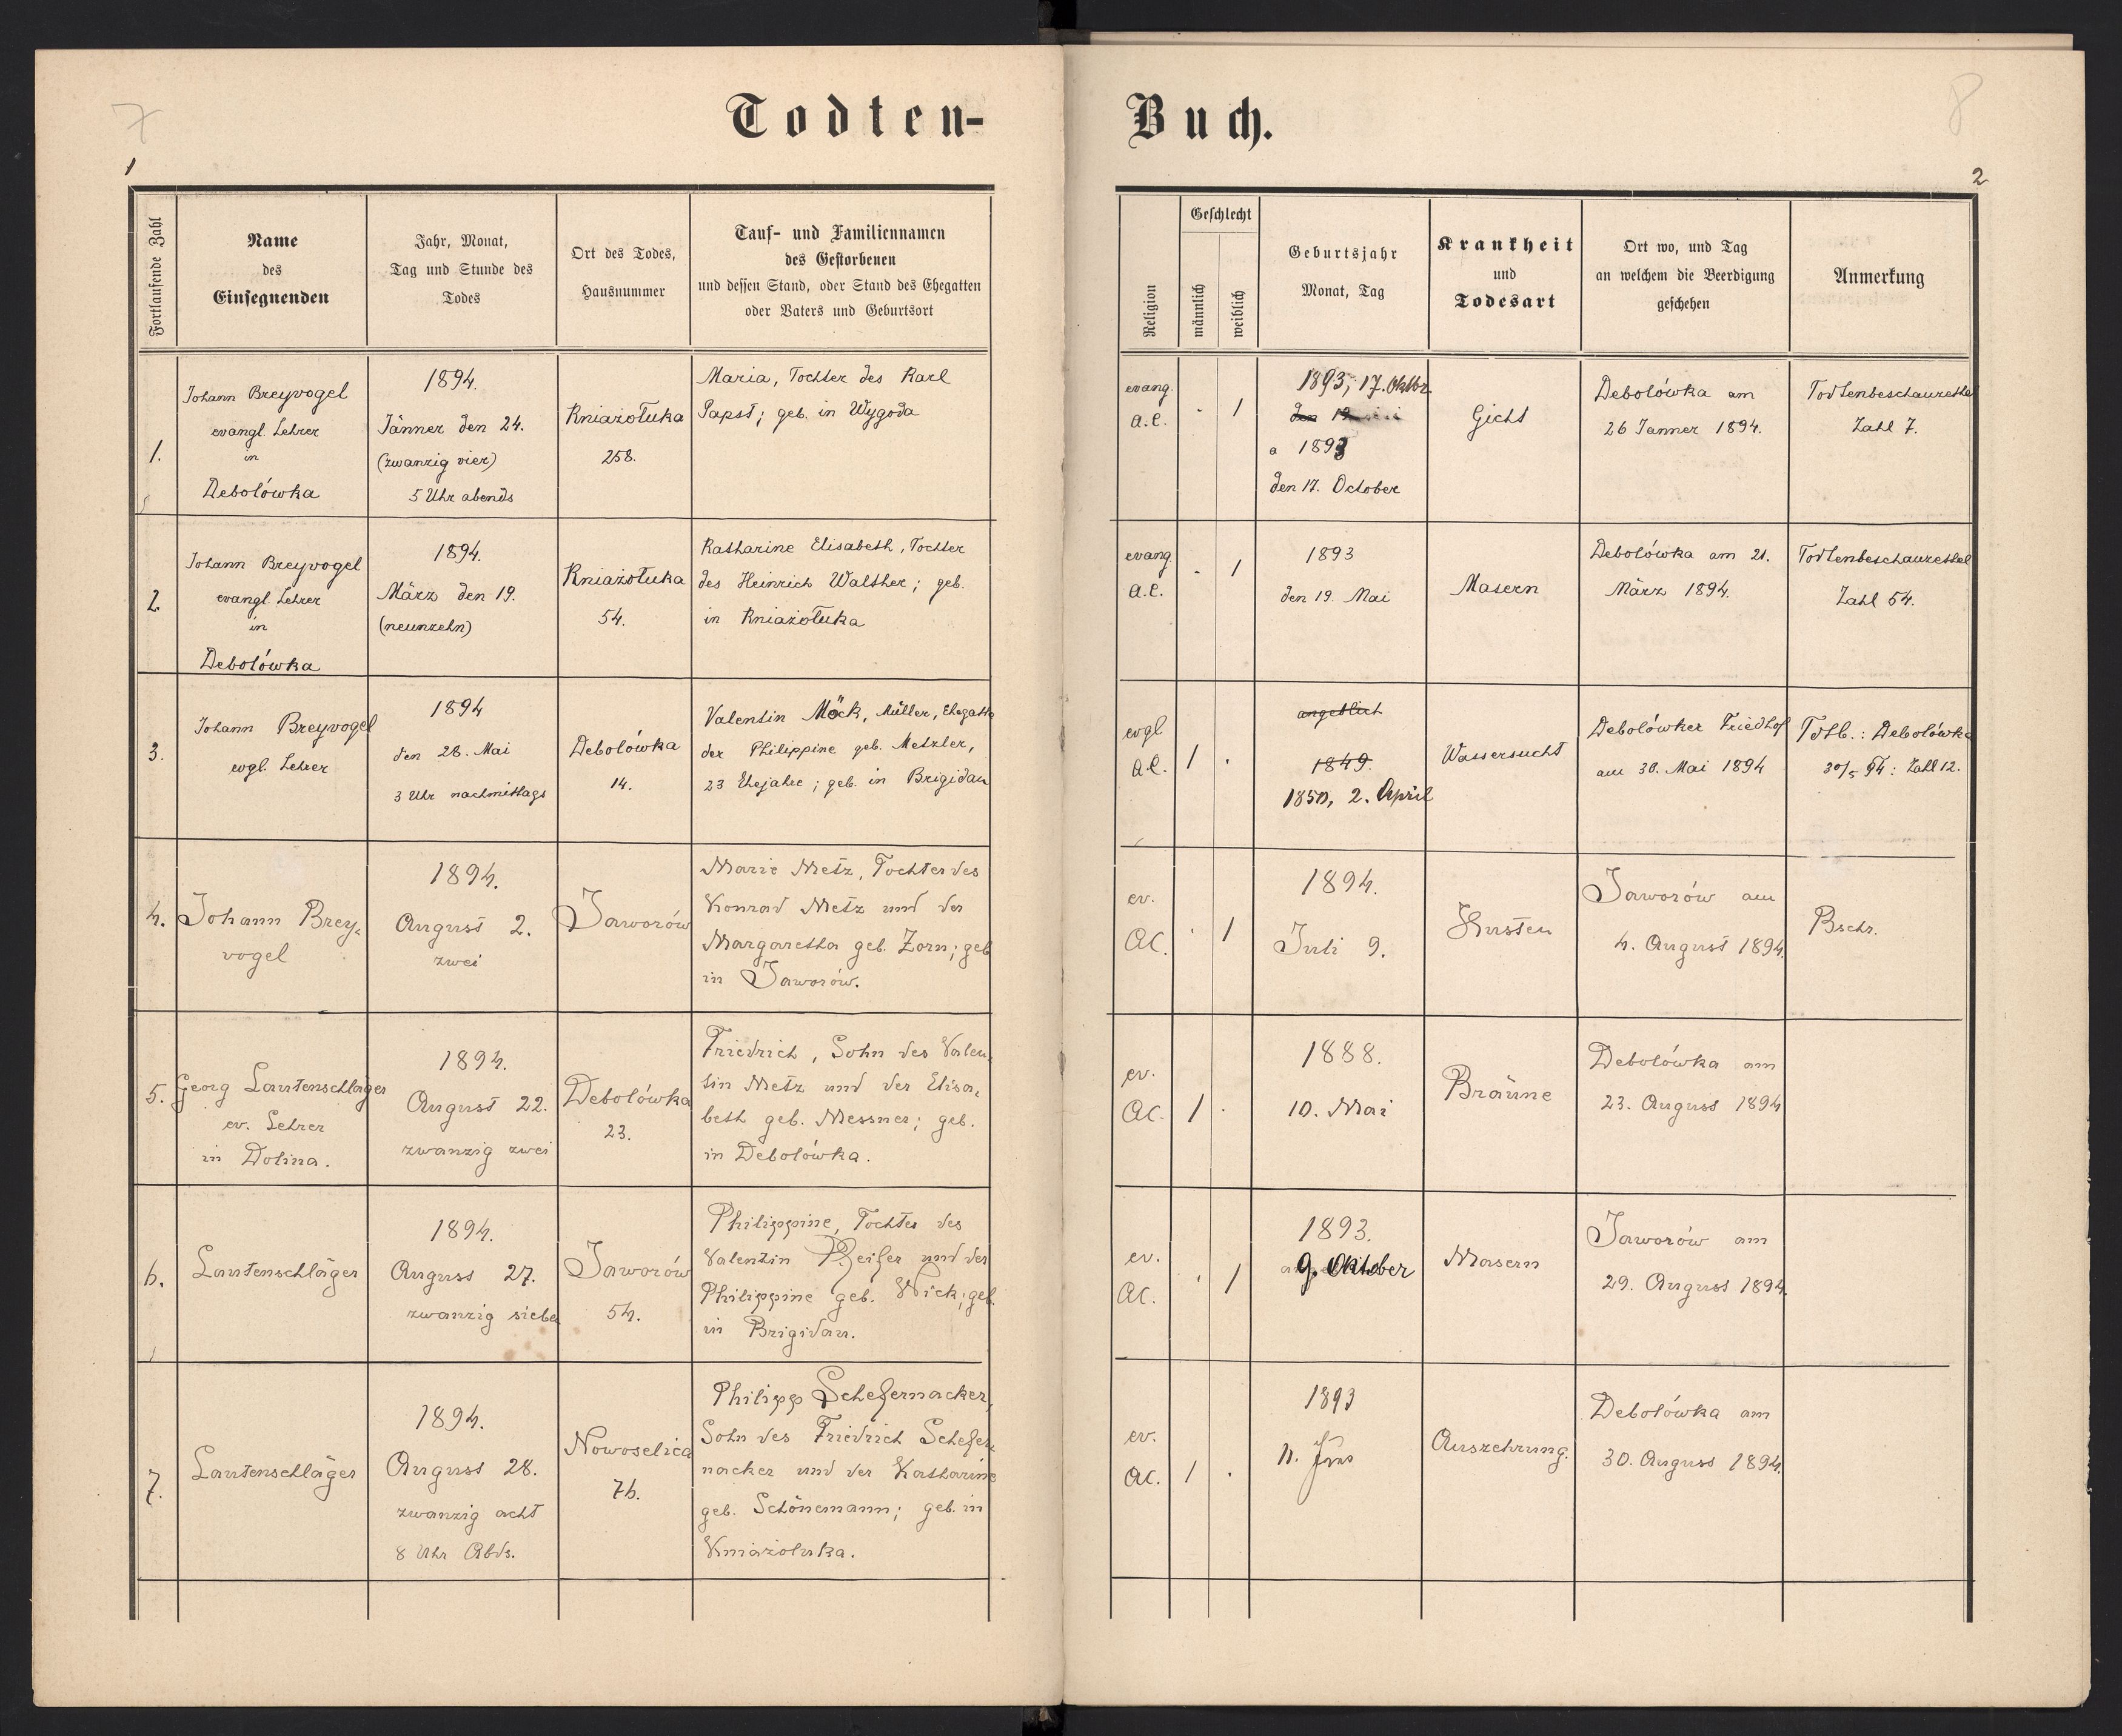 7
Todten-
1
Fortlaufende Zahl
Name
des
Einsegnenden
Jahr, Monat,
Tag und Stunde des
Todes
Ort des Todes,
Hausnummer
Tauf- und Familiennamen
des Gestorbenen
und dessen Stand, oder Stand des Ehegatten
oder Vaters und Geburtsort
1.
Johann Breyvogel
evangl. Lehrer
in
Debolówka
1894.
Jänner den 24.
(zwanzig vier)
5 Uhr abends
Kniażołuka
258.
Maria, Tochter des Karl
Papst; geb. in Wygoda
2.
Johann Breyvogel
evangl. Lehrer
in
Debolówka
1894.
März den 19.
(neunzehn)
Kniażołuka
54.
Katharine Elisabeth, Tochter
des Heinrich Walther; geb.
in Kniażołuka
3.
Johann Breyvogel
evgl. Lehrer
1894
den 28. Mai
3 Uhr nachmittags
Debolówka
14.
Valentin Möck, Müller, Ehegatte
der Philippine geb. Metzler,
23 Ehejahre; geb. in Brigidau
4.
Johann Brey-
vogel
1894.
August 2.
zwei
Jaworów
Marie Metz, Tochter des
Konrad Metz und der
Margaretha geb. Zorn; geb
in Jaworów.
5.
Georg Lautenschläger
ev. Lehrer
in Dolina.
1894.
August 22.
zwanzig zwei
Debolówka
23.
Friedrich, Sohn des Valen-
tin Metz und der Elisa-
beth geb. Messner; geb.
in Debolówka.
6.
Lautenschläger
1894.
August 27.
zwanzig sieben
Jaworów
54.
Philippine, Tochter des
Valentin Pfeifer und der
Philippine geb. Wick; geb.
in Brigidau.
7.
Lautenschläger
1894.
August 28.
zwanzig acht
8 Uhr Abds.
Nowoselica
76.
Philipp Schefernacker,
Sohn des Friedrich Schefer-
nacker und der Katharine
geb. Schönemann; geb. in
Kniazoluka.
8
Buch.
2
Religion
Geschlecht
männlich
weiblich
Geburtsjahr
Monat, Tag
Krankheit
und
Todesart
Ort wo, und Tag
an welchem die Beerdigung
geschehen
Anmerkung
evang.
a.c.
. 1
1893, 17. Oktbr.
den 19
a 1893
den 17. October
Gicht
Debolówka am
26 Jänner 1894.
Todtenbeschauzettel
Zahl 7.
evang.
a.c.
. 1
1893
den 19. Mai
Masern
Debolówka am 21.
März 1894.
Todtenbeschauzettel
Zahl 54.
evgl
a.c.
1 .
angeblich
1849.
1850, 2. April
Wassersucht
Debolówker Friedhof
am 30. Mai 1894
Totb.: Debolówka
30/5 94: Zahl 12.
ev.
AC.
. 1
1894.
Juli 9.
Husten
Jaworów am
4. August 1894.
Bschr.
ev.
AC.
1 .
1888.
10. Mai
Bräune
Debolówka am
23. August 1894
ev.
AC.
. 1
1893.
9. Oktober
Masern
Jaworów am
29. August 1894.
ev.
AC.
1 .
1893
11.
Auszehrung.
Debolówka am
30. August 1894.